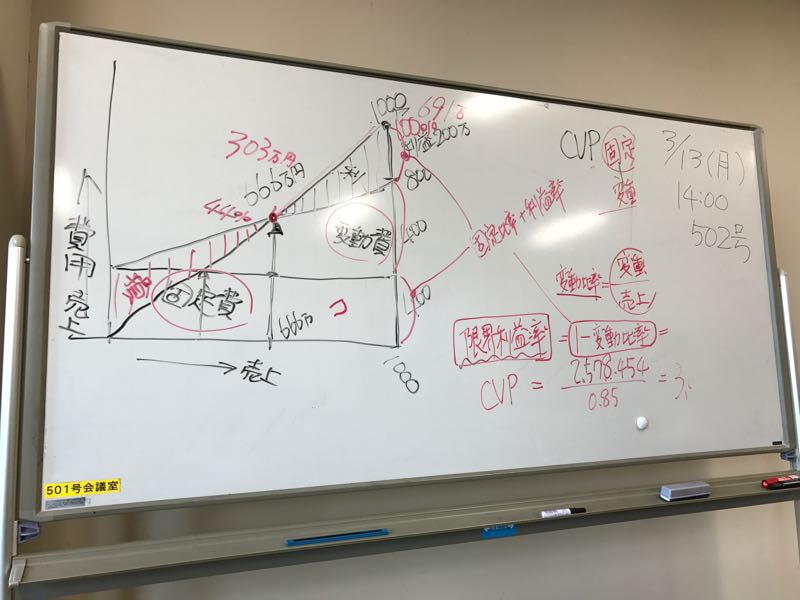 1000万
691万
100%
利益200万
303万円
666万円
44%
利
800
400
変動費
固定費
損
666万
400
1000
↑費用売上
→売上
固定比率+利益率
CVP 固定
変動
3/13(月)
14:00
502号
変動比率=変動/売上
限界利益率=1-変動比率=
CVP=2,578.454/0.85=3.
501号会議室